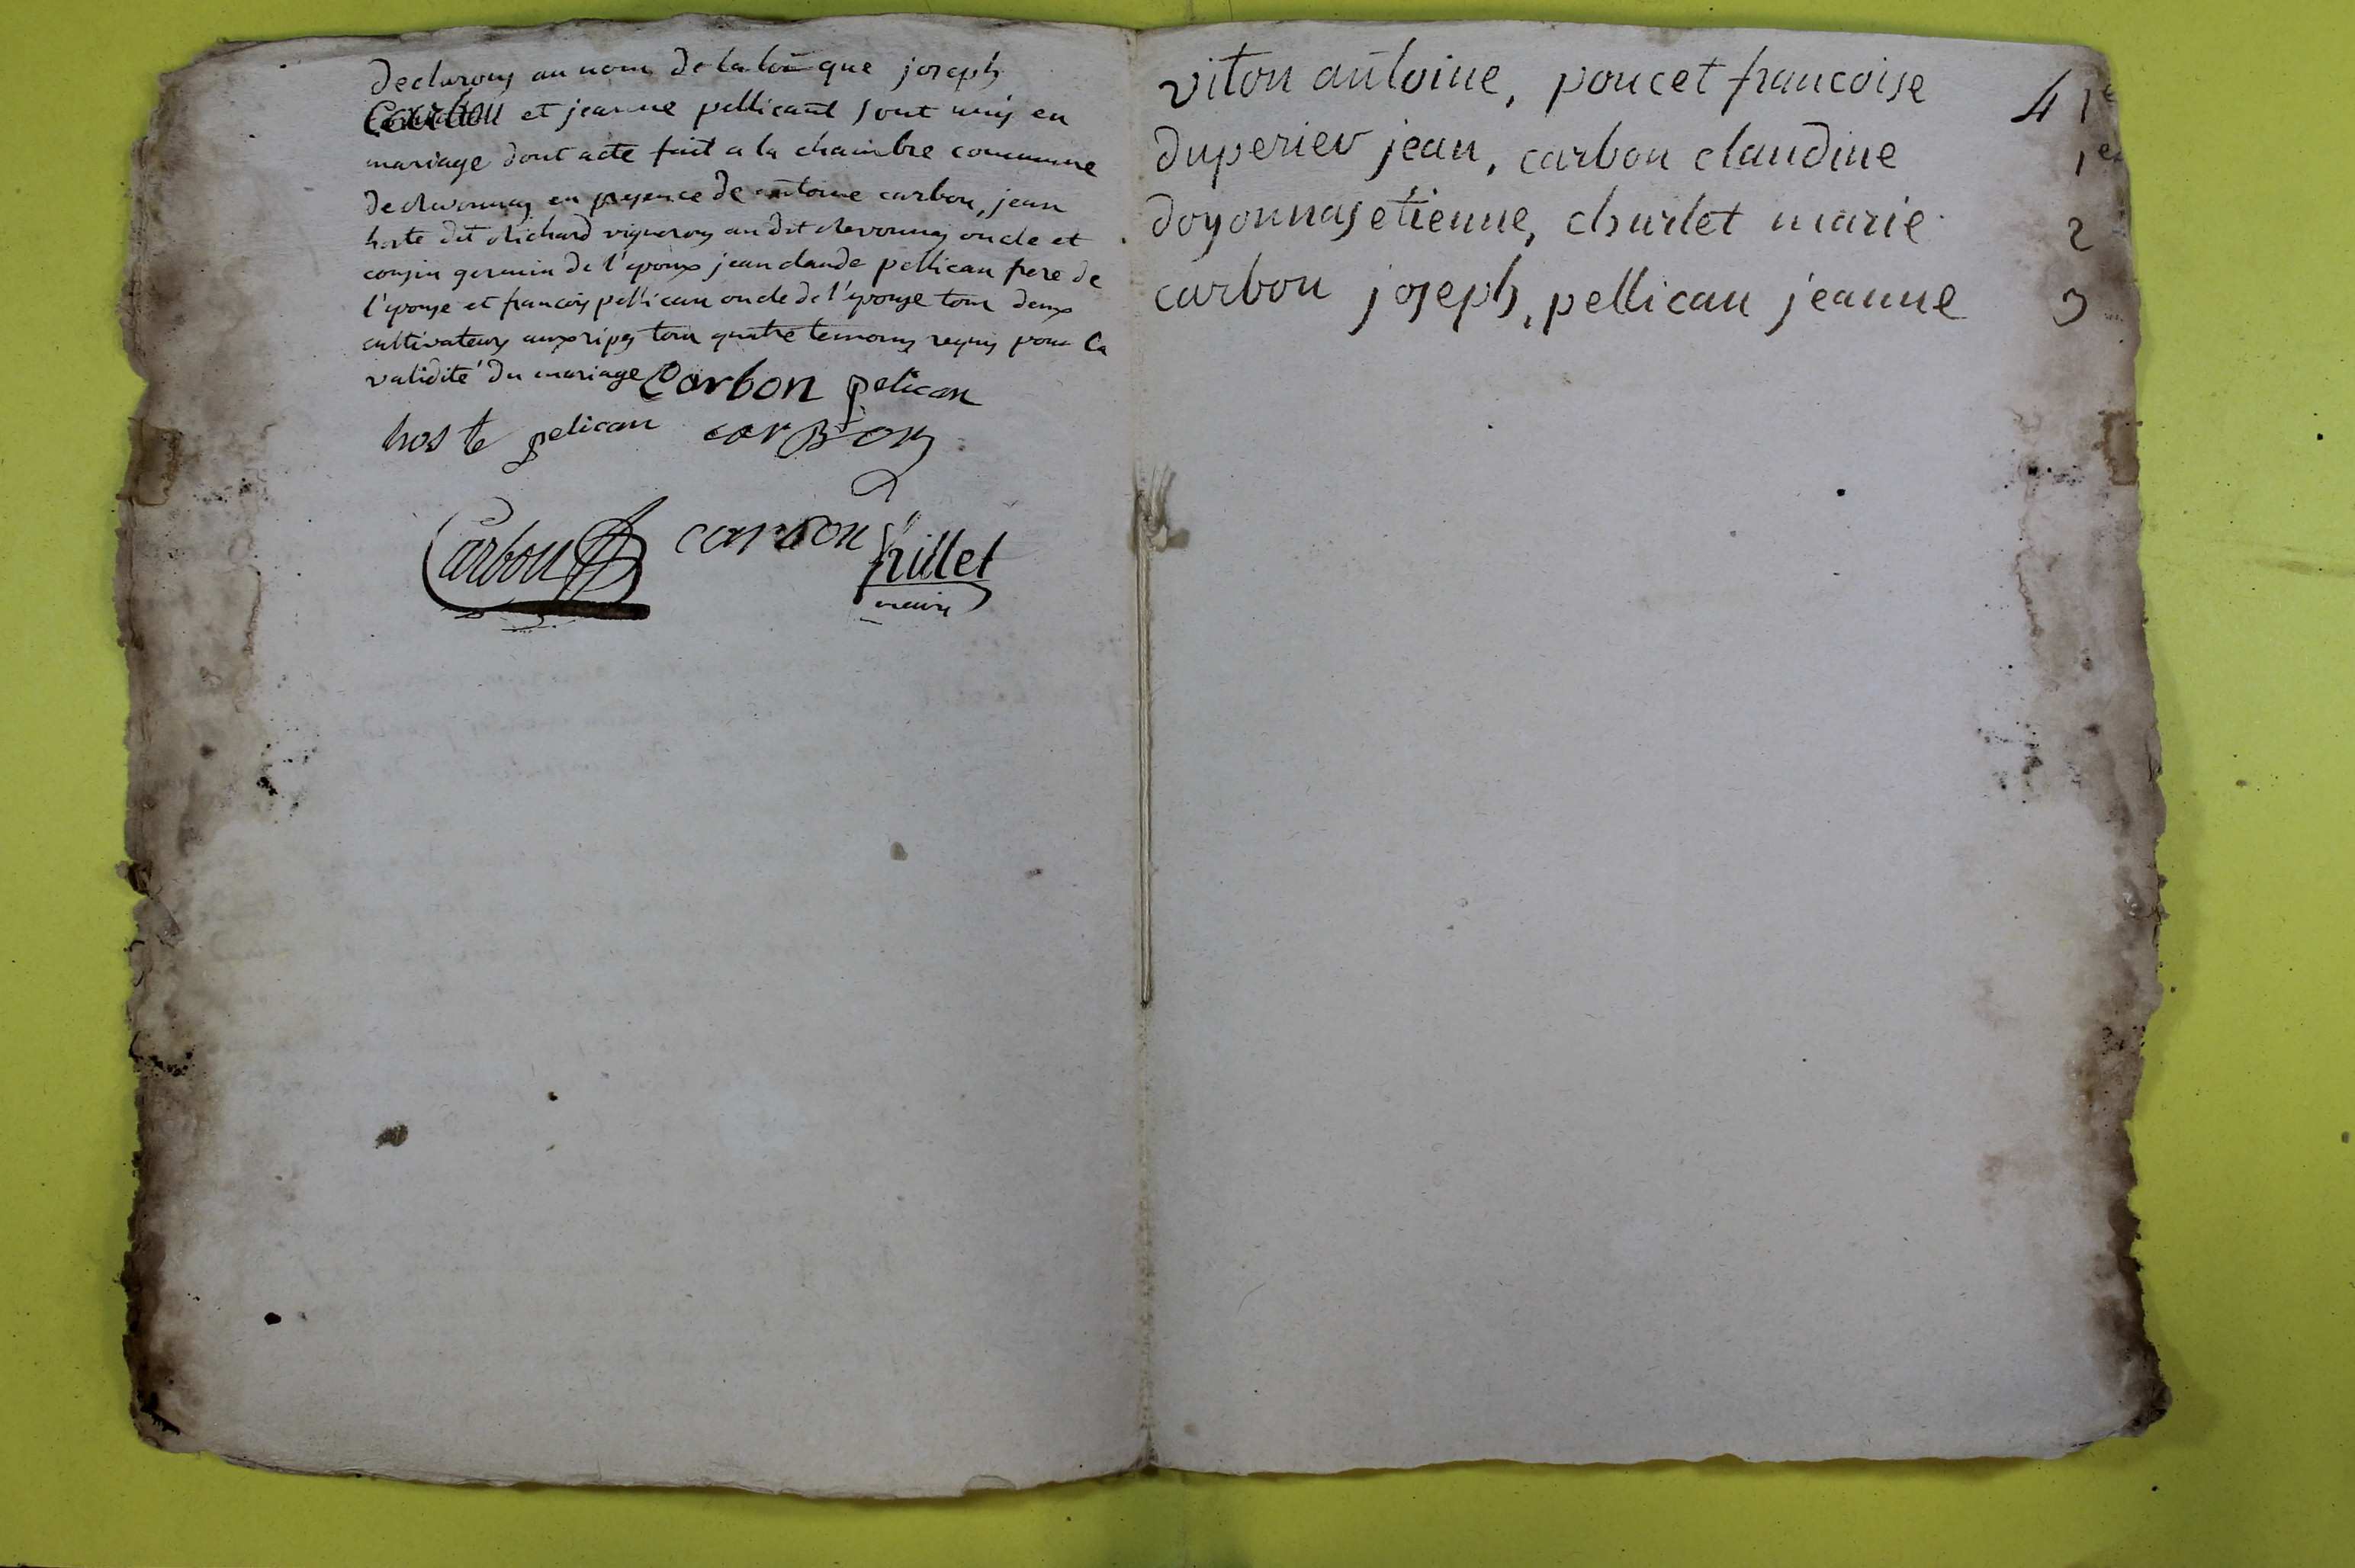 declarons au nom de la loi que joseph
Carbon et jeanne pellicant sont unis en
mariage dont acte fait a la chambre commune
de chavonnay en presence de antoine carbon, jean
hoste dit Richard vigneron au dit chavonnay oncle et
cousin germin de l'epoux jean claude pellican frere de
l'epouse et francois pellican oncle de l'epouse tous deux
cultivateurs aux ripes tous quatre temoins requis pour la
validité du mariage Carbon pelican
hoste pelican carBon
Carbon carbon hillet
maire
viton antoine, poncet francoise 1e
4
duperier jean, carbon claudine 1e
doyonnas etienne, charlet marie 2
carbon joseph, pellican jeanne 3